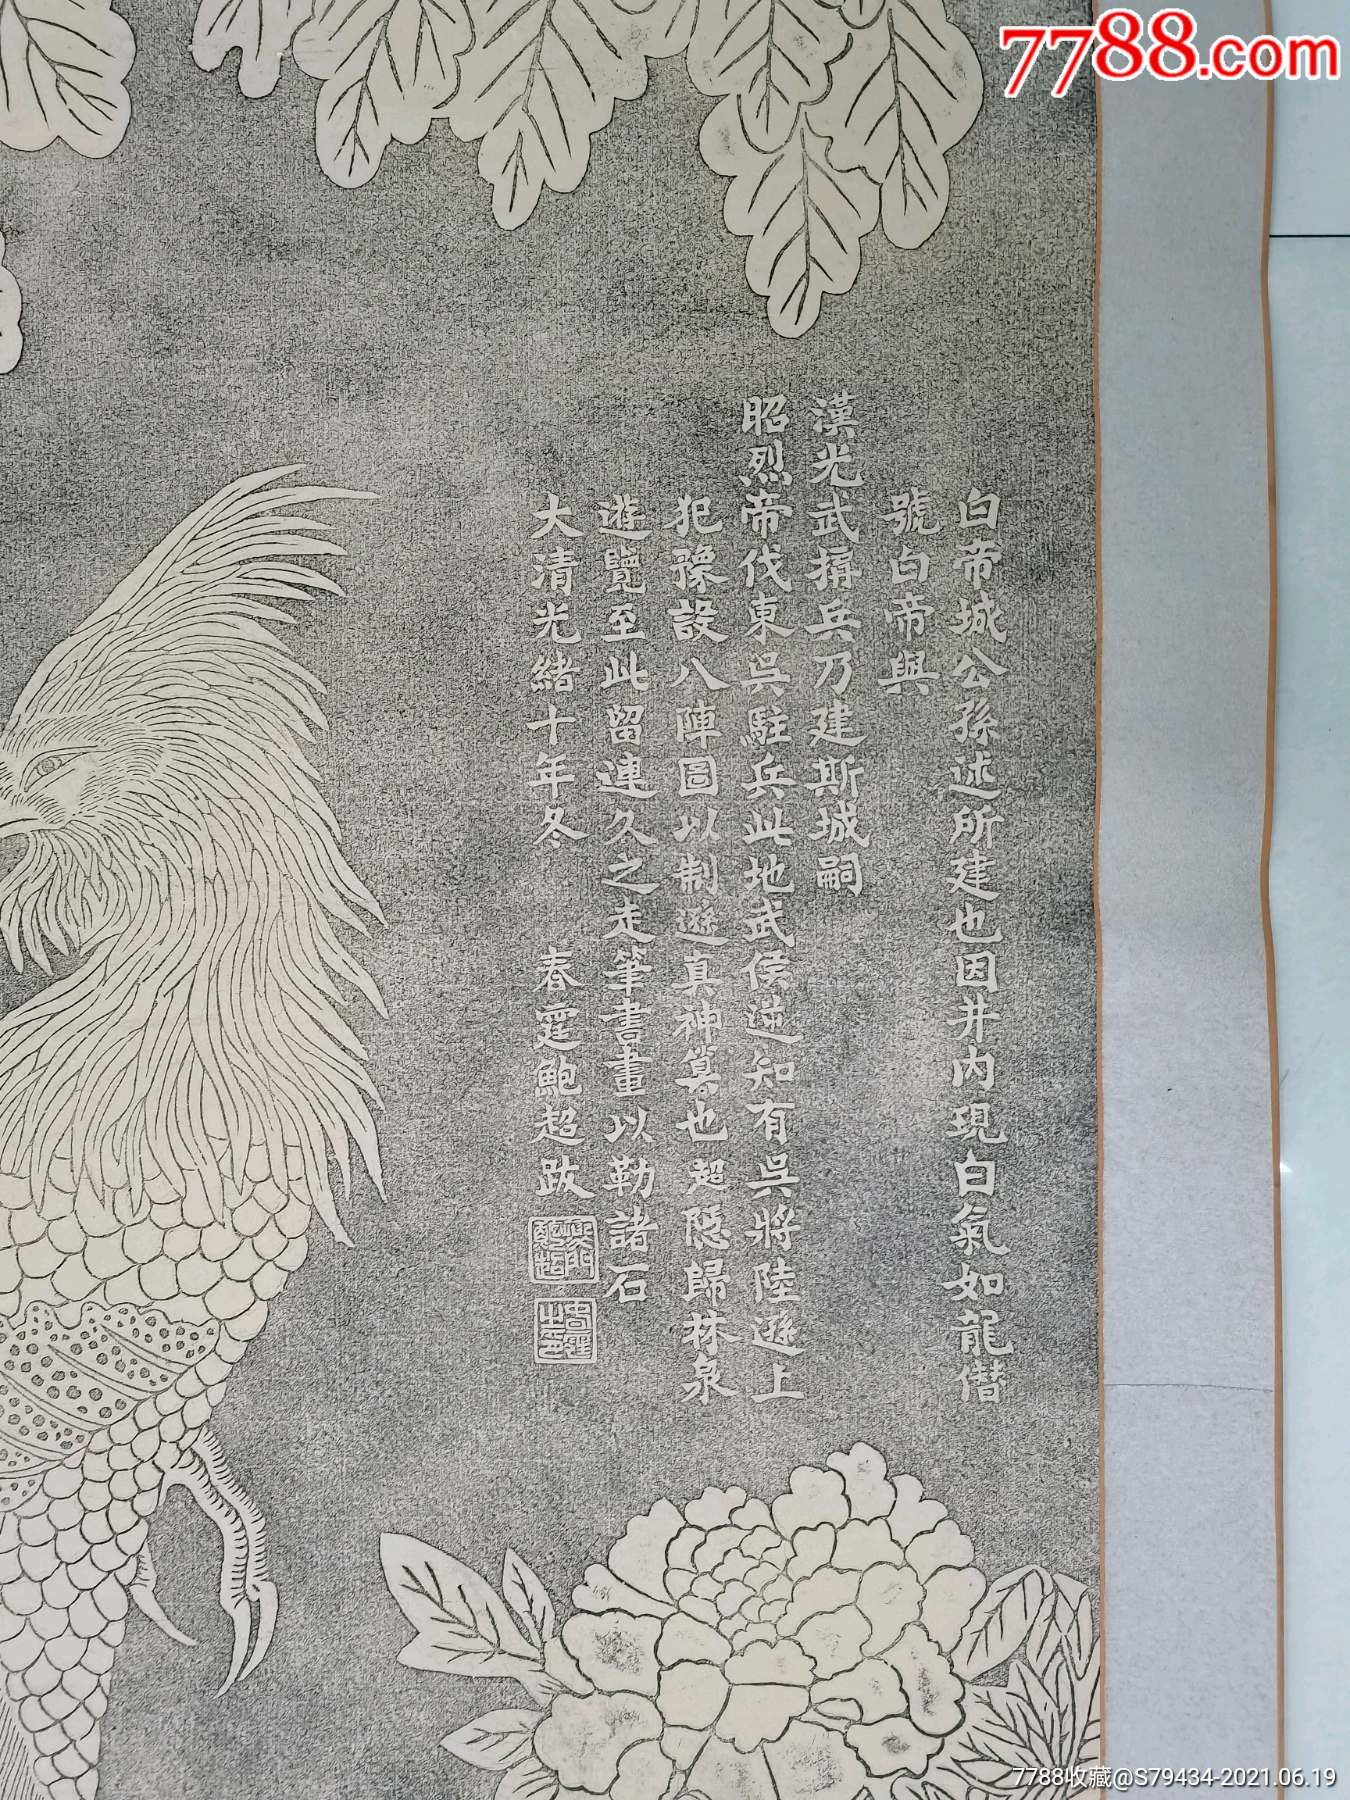 7788.com
白帝城公孫述所建也因井内現白氣如龍僭
號白帝與
漢光武搆兵乃建斯城嗣
昭烈帝伐東吳駐兵此地武侯逆知有吳將陸遜上
犯豫設八陣圖以制遜真神算也超隱歸林泉
遊覽至此留連久之走筆書畫以勒諸石
大清光緒十年冬 春霆鮑超跋
7788收藏@S79434-2021.06.19